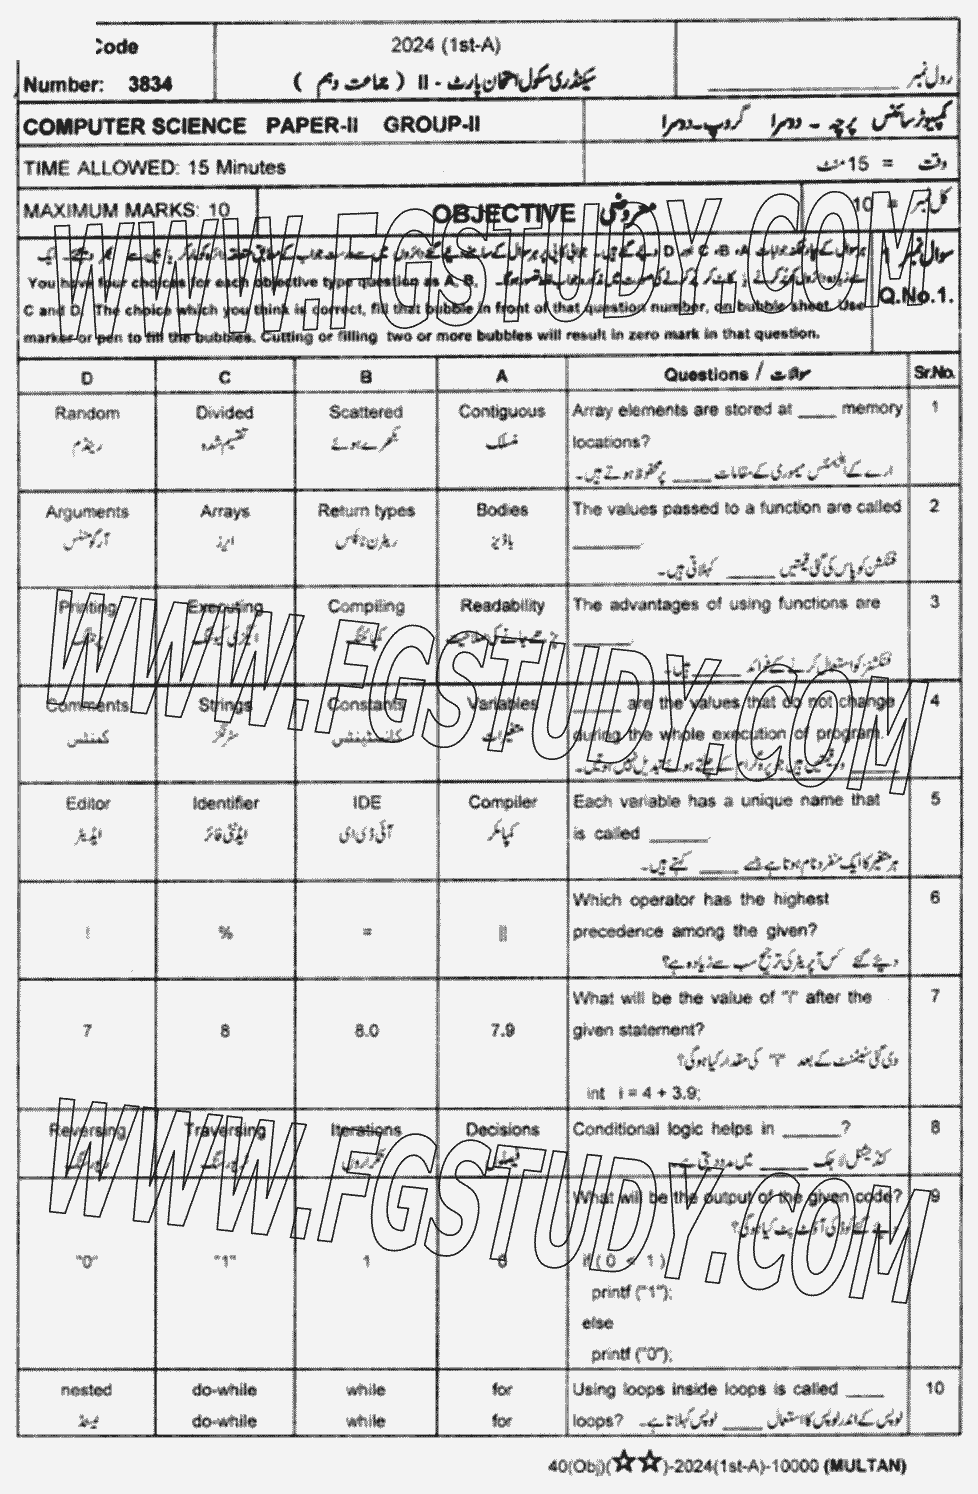 Code
Number: 3834
2024 (1st-A)
سیکنڈری سکول امتحان پارٹ - II ( جماعت دہم )
رول نمبر
COMPUTER SCIENCE PAPER-II GROUP-II
کمپیوٹر سائنس پرچہ - دوسرا گروپ-دوسرا
TIME ALLOWED: 15 Minutes
وقت = 15 منٹ
MAXIMUM MARKS: 10
OBJECTIVE معروضی
کل نمبر = 10
سوال نمبر 1
Q.No.1.
You have four choices for each objective type question as A, B,
C and D. The choice which you think is correct, fill that bubble in front of that question number, on bubble sheet. Use
marker or pen to fill the bubbles. Cutting or filling two or more bubbles will result in zero mark in that question.
D C B A Questions / سوالات Sr.No.
Random Divided Scattered Contiguous Array elements are stored at ____ memory 1
locations?
رینڈم تقسیم شدہ بکھرے ہوئے منسلک
ارے کے ایلیمنٹس میموری کے مقامات ____ پر محفوظ ہوتے ہیں۔
Arguments Arrays Return types Bodies The values passed to a function are called 2
______.
آرگومنٹس ایرز ریٹرن ٹائپس باڈیز
فنکشن کو پاس کی گئی قیمتیں ____ کہلاتی ہیں۔
Printing Executing Compiling Readability The advantages of using functions are 3
______.
فنکشنز کو استعمال کرنے کے فوائد ____ ہیں۔
Comments Strings Constants Variables _____ are the values that do not change 4
during the whole execution of program.
کمنٹس سٹرنگز کانسٹینٹس متغیرات
Editor Identifier IDE Compiler Each variable has a unique name that 5
is called ______.
ایڈیٹر ایڈنٹی فائر آئی ڈی ای کمپائلر
ہر متغیر کا ایک منفرد نام ہوتا ہے جسے ____ کہتے ہیں۔
Which operator has the highest 6
precedence among the given?
! % = ||
دیئے گئے کس آپریٹر کی ترجیح سب سے زیادہ ہے؟
What will be the value of "i" after the 7
given statement?
7 8 8.0 7.9
دی گئی سٹیٹمنٹ کے بعد "i" کی مقدار کیا ہوگی؟
int i = 4 + 3.9;
Reversing Traversing Iterations Decisions Conditional logic helps in ______? 8
کنڈیشنل لاجک ____ میں مدد دیتی ہے۔
What will be the output of the given code? 9
دیئے گئے کوڈ کی آؤٹ پٹ کیا ہوگی؟
"0" "1" 1 0 if ( 0 < 1 )
printf ("1");
else
printf ("0");
nested do-while while for Using loops inside loops is called ____ 10
loops?
نیسٹڈ do-while while for لوپس کے اندر لوپس کا استعمال ____ لوپس کہلاتا ہے۔
40(Obj)(☆☆)-2024(1st-A)-10000 (MULTAN)
WWW.FGSTUDY.COM
WWW.FGSTUDY.COM
WWW.FGSTUDY.COM